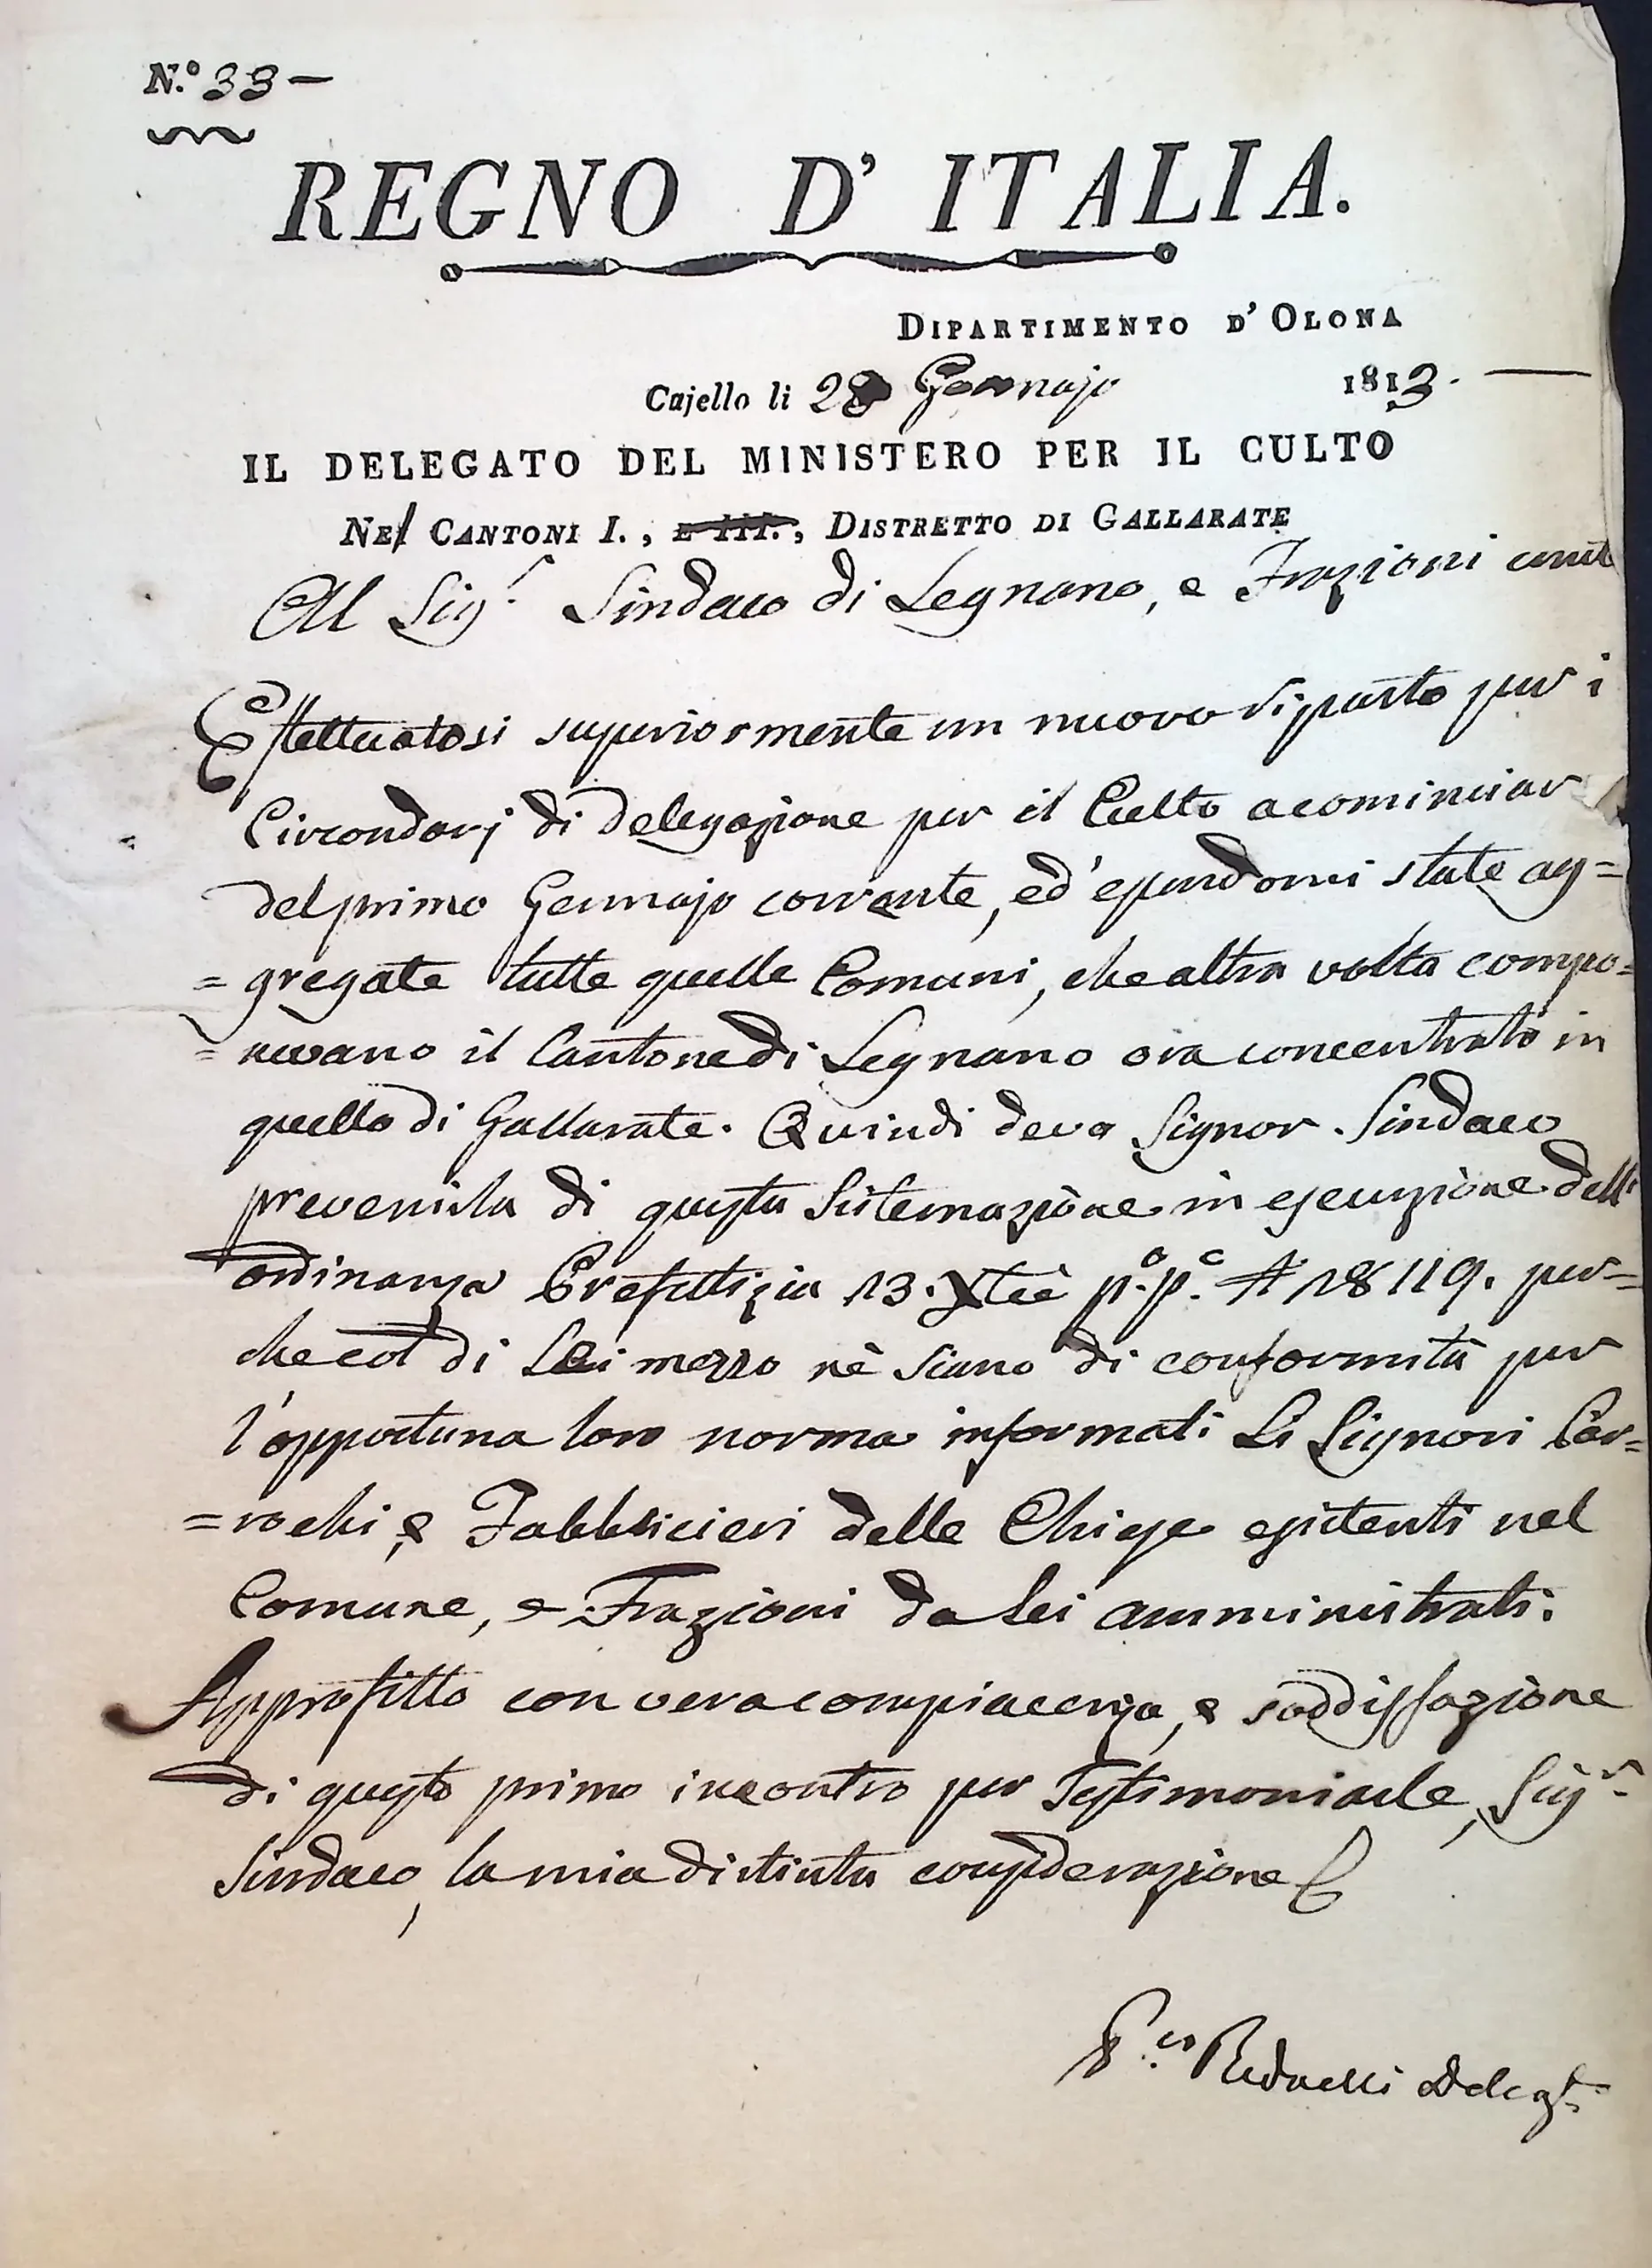 N.º 33 —
REGNO D' ITALIA.
DIPARTIMENTO D' OLONA
Cajello li 28 Gennajo 1813. —
IL DELEGATO DEL MINISTERO PER IL CULTO
NEl CANTONI I., E III., DISTRETTO DI GALLARATE
Al Sig.r Sindaco di Legnano, e Frazioni
Effettuatosi superiormente un nuovo riparto per i
Circondarj di delegazione per il Culto a cominciar
del primo Gennajo corrente, ed' essendomi state ag=
=gregate tutte quelle Comuni, che altra volta compo=
=nevano il Cantone di Legnano ora concentrato in
quello di Gallarate. Quindi devo Signor Sindaco
prevenirla di questa Sistemazione in esecuzione dell'
ordinanza Prefettizia 13. Xbre p.o p.o N 18119. per=
che col di Lei mezzo nè siano di conformità per
l'opportuna loro norma informati Li Signori Par=
=rochi, e Fabbricieri delle Chiese esistenti nel
Comune, e Frazioni da Lei amministrati.
Approfitto con vera compiacenza, e soddisfazione
di questo primo incontro per Testimoniarle, Sig.r
Sindaco, la mia distinta considerazione
P.co Redaelli Delegt.